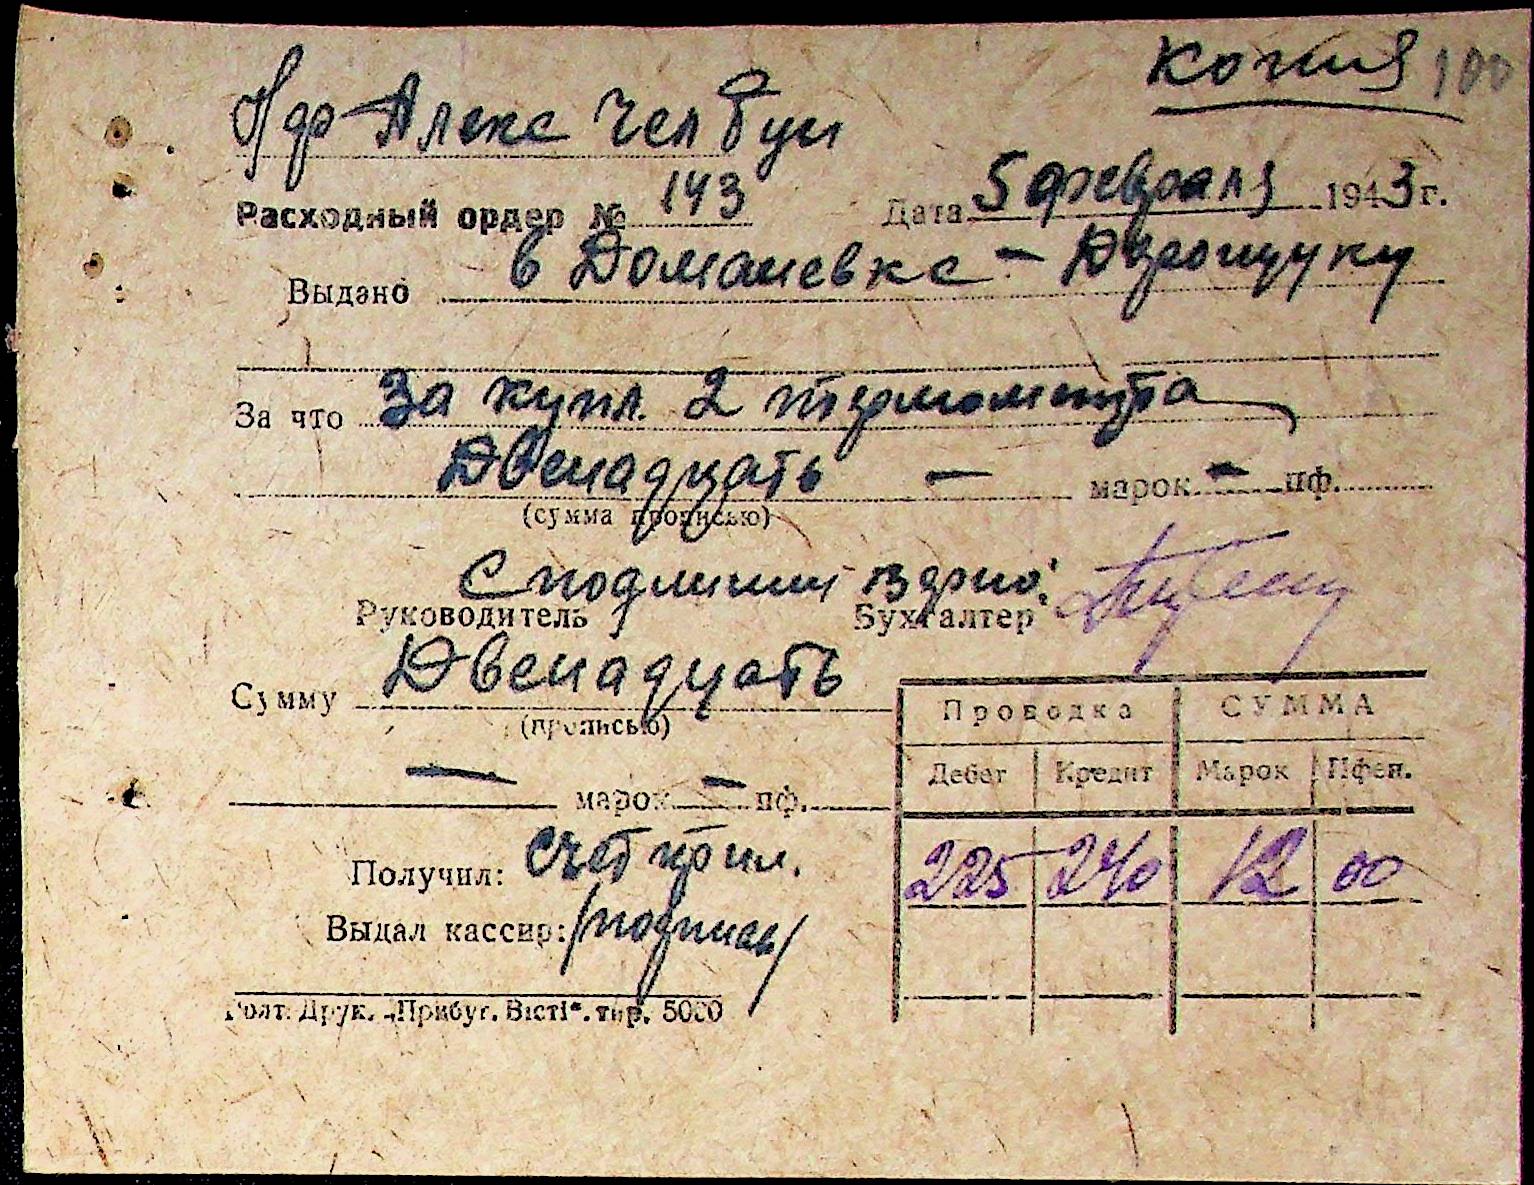 Копия 100
Расходный ордер № 143 Дата 5 февраля 1943 г.
Выдано в Доманевке –
За что За купл. 2 термометра
Двенадцать – марок – пф.
(сумма прописью)
С подлинным верно:
Руководитель Бухгалтер
Сумму Двенадцать
(прописью)
– марок – пф.
Получил: счет прил.
Выдал кассир: /подпись/
Проводка СУММА
Дебет Кредит Марок Пфен.
225 240 12 00
Голт. Друк. „Прибуг. Вісті“. тир. 5000